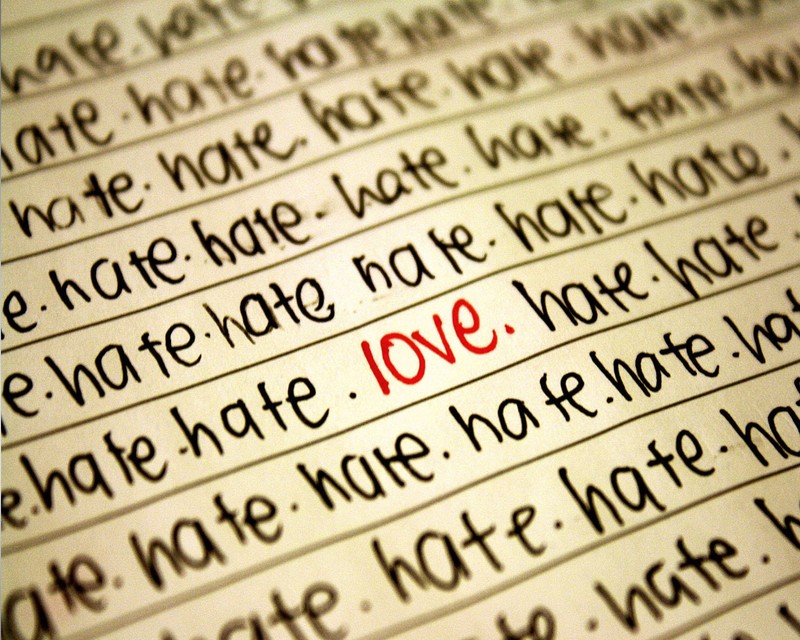 hate. hate
ate. hate. hate hate
hate. hate. hate. hate. hate. hate
e. hate. hate. hate. hate. hate. ha
e. hate. hate hate. hate. hate.
e. hate. hate. love. hate. hate.
ate. hate. hate. hate. hate. hat
ate. hate. hate. ha
hate.